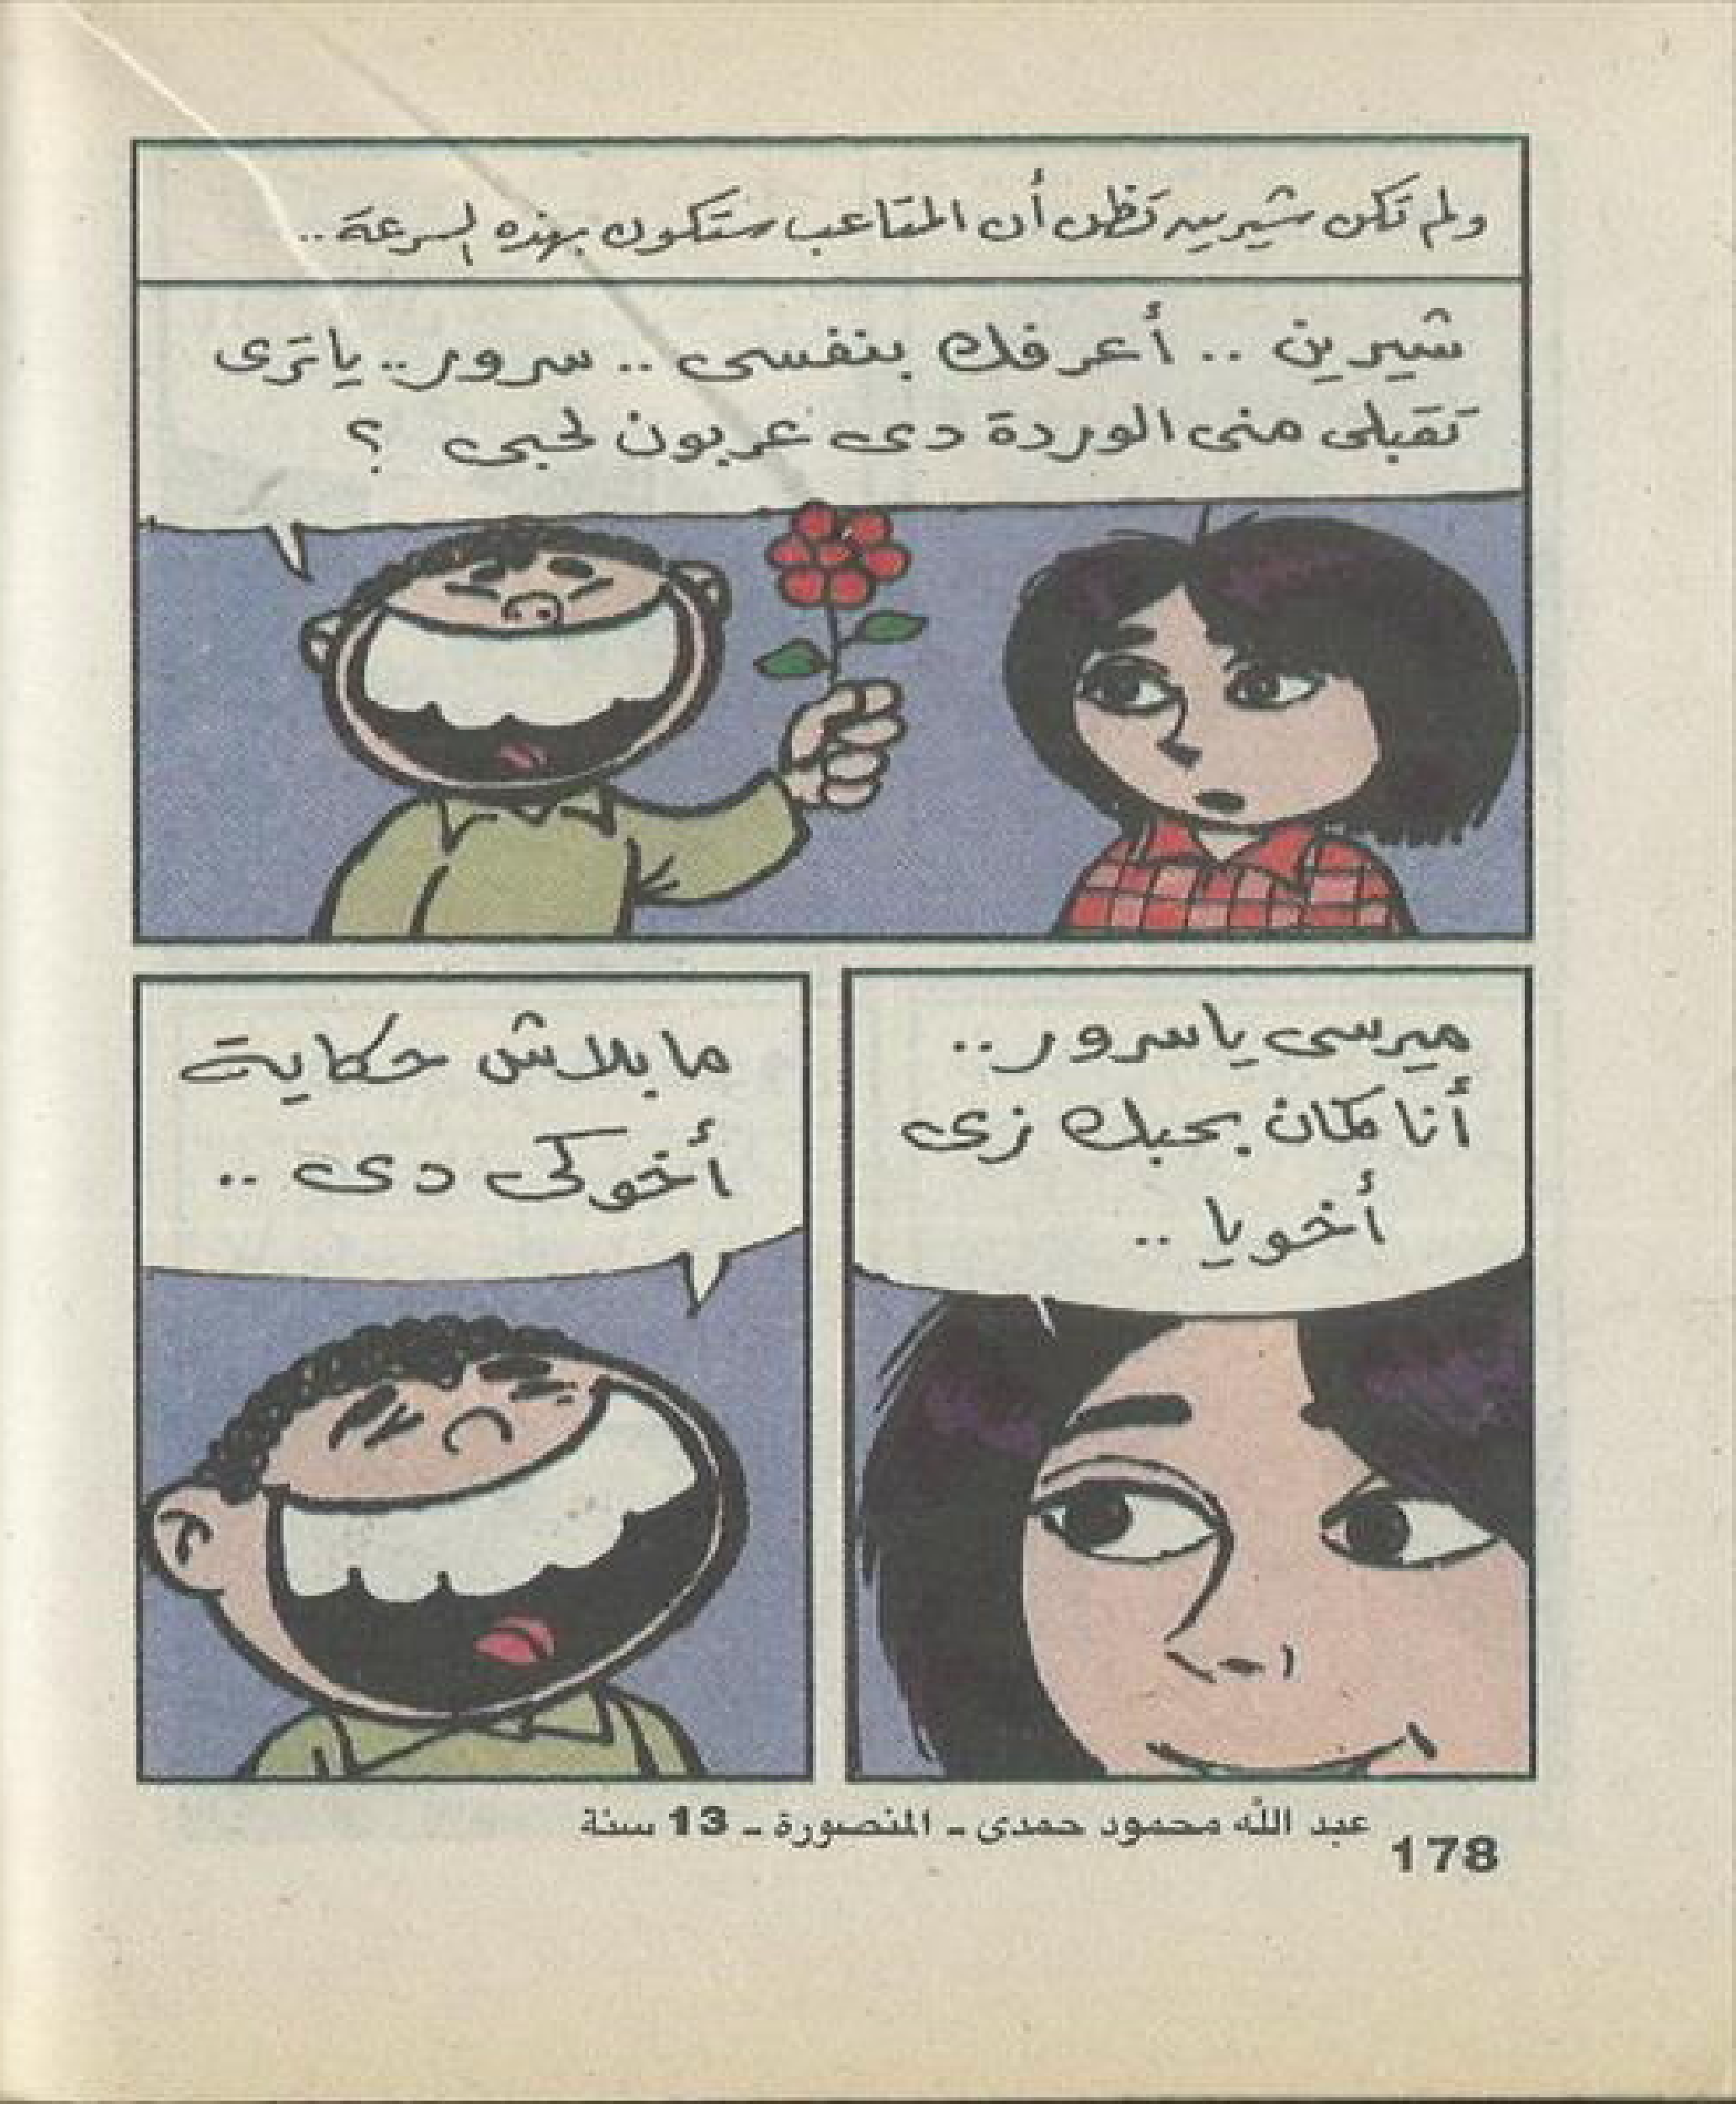 ولم تكن شيرين تظن أن المتاعب ستكون بهذه السرعة..
شيرين .. أعرفك بنفسى .. سرور.. ياترى
تقبلى منى الوردة دى عربون لحبى ؟
ميرسى ياسرور..
أنا كمان بحبك زى
أخويا ..
ما بلاش حكاية
أخوكى دى ..
عبد الله محمود حمدى - المنصورة - 13 سنة
178